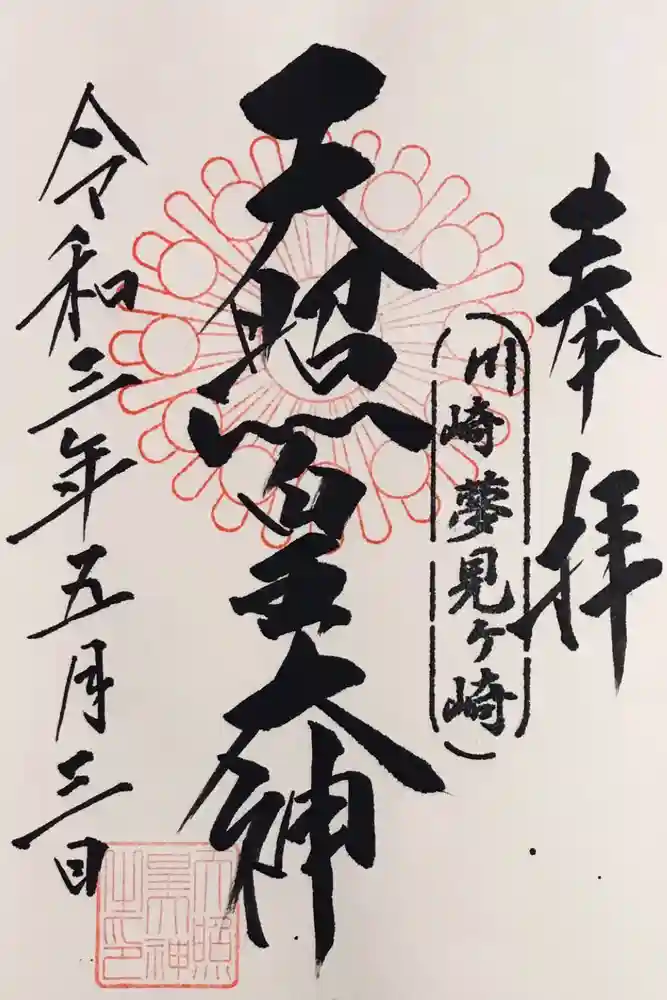 奉拝
川崎夢見ヶ崎
天照皇大神
令和三年五月三日
天照
皇大神
之印